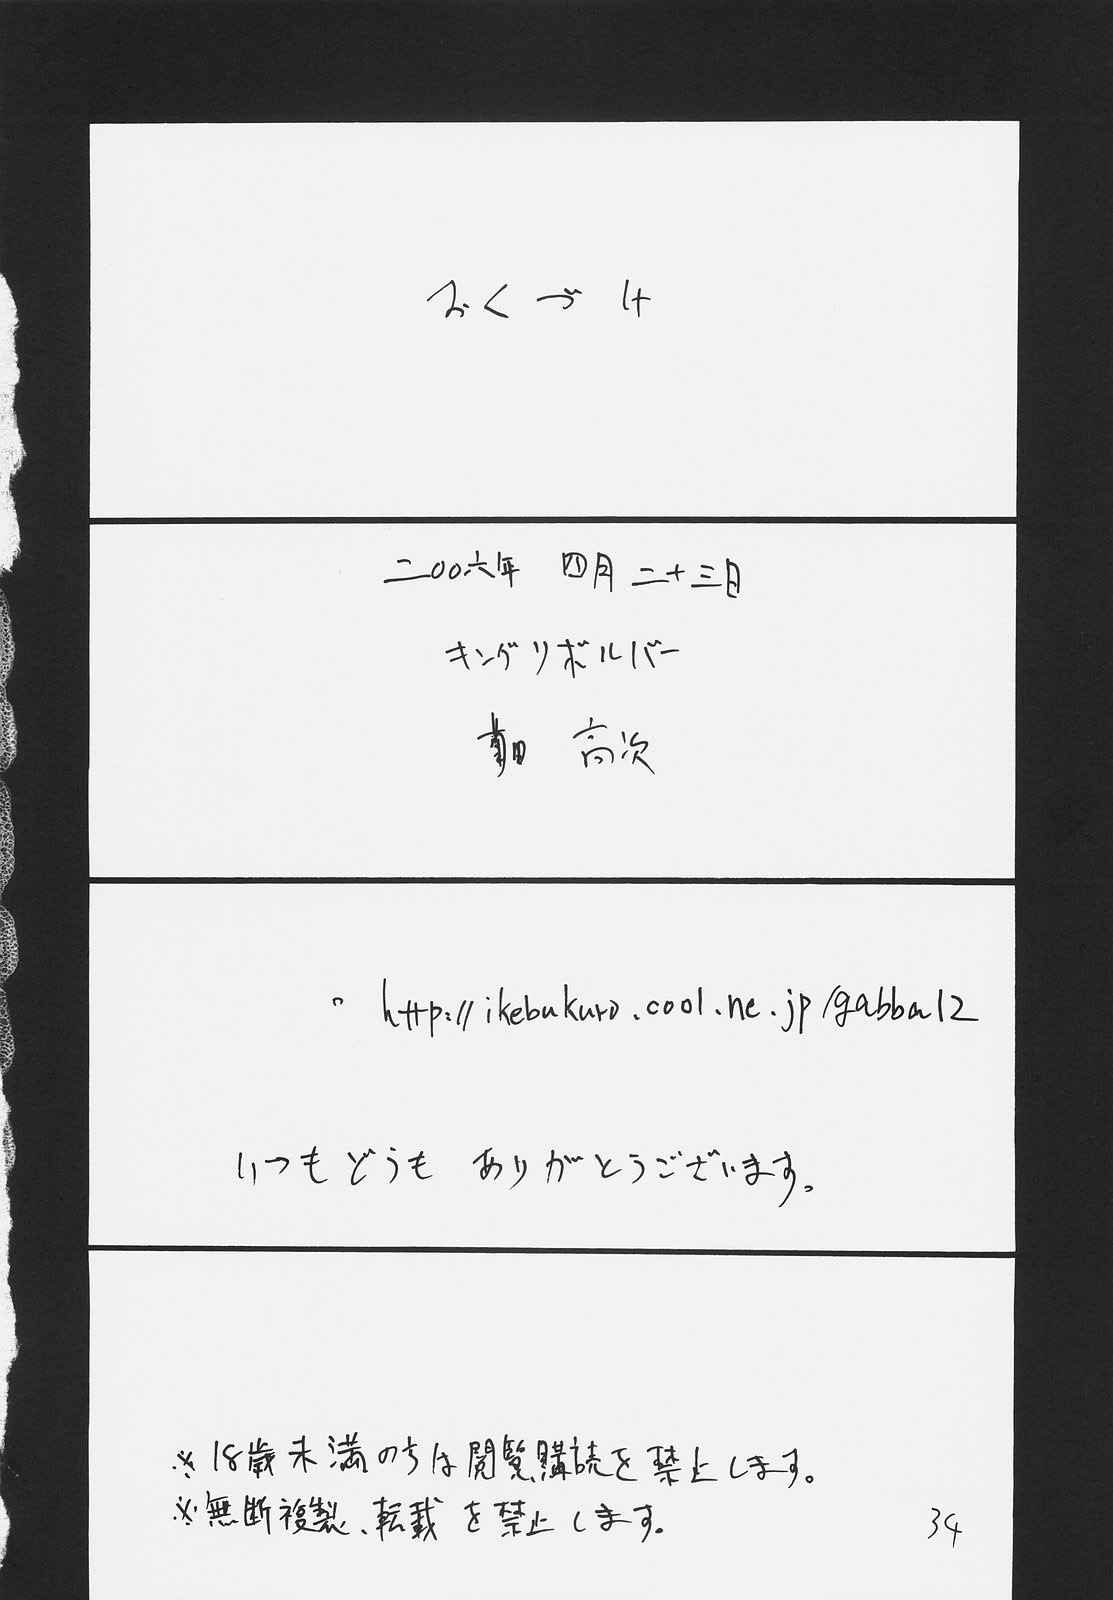 おくづけ
二〇〇六年 四月二十三日
キングリボルバー
高次
http://ikebukuro.cool.ne.jp/gabba12
いつもどうも ありがとうございます。
※18歳未満のちは閲覧購読を禁止します。
※無断複製、転載を禁止します。
34